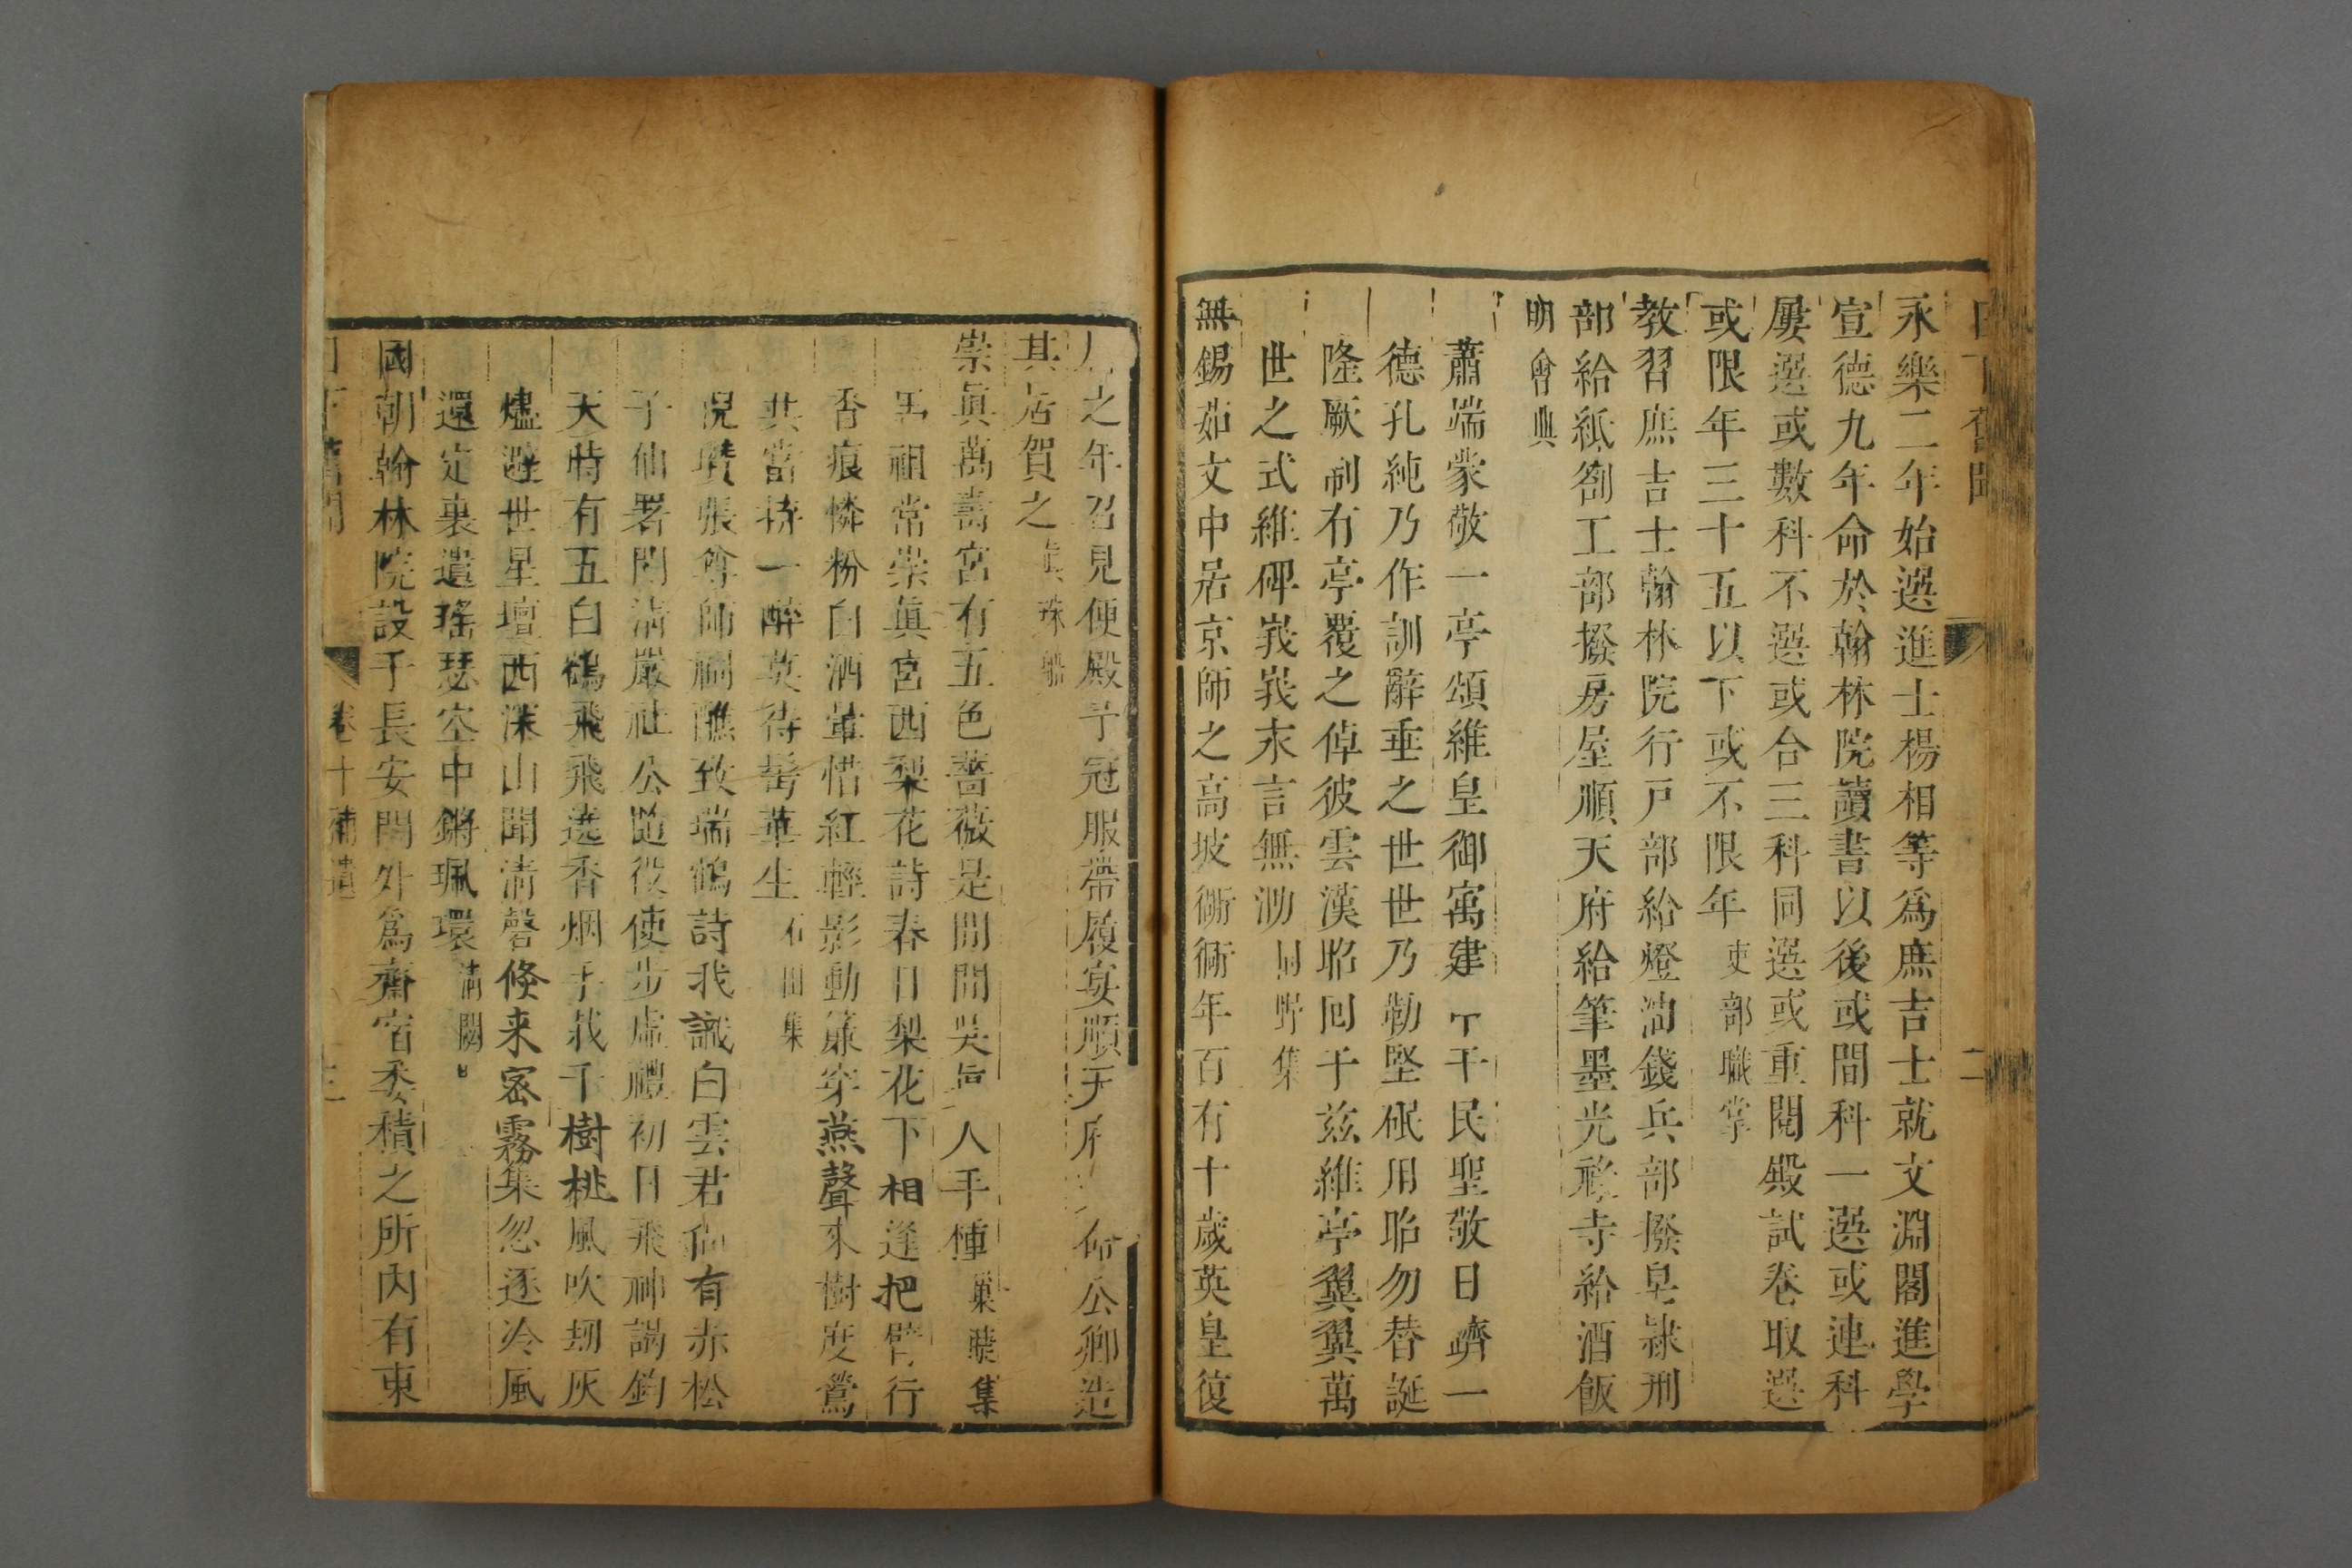 日下舊聞 二
永樂二年始選進士楊相等爲庶吉士就文淵閣進學
宣德九年命於翰林院讀書以後或間科一選或連科
屢選或數科不選或合三科同選或重閱殿試卷取選
或限年三十五以下或不限年吏部職掌
教習庶吉士翰林院行戸部給燈油錢兵部撥皁隷刑
部給紙劄工部撥房屋順天府給筆墨光祿寺給酒飯
明會典
蕭端蒙敬一亭頌維皇御寓建丅干民聖敬日躋一
德孔純乃作訓辭垂之世世乃勒堅珉用昭勿替誕
隆厥制有亭覆之倬彼雲漢昭囘于兹維亭翼翼萬
世之式維碑峩峩永言無泐同野集
無錫茹文中居京師之高坡衚衕年百有十歲英皇復
之年召見便殿予冠服帶履宴順天府 命公卿造
其居賀之眞珠船
崇眞萬壽宮有五色薔薇是閒閒吳眞人手種巢䕫集
馬祖常崇眞宮西梨花詩春日梨花下相逢把臂行
香痕憐粉白酒暈惜紅輕影動簾穿燕聲來樹度鶯
共當拚一醉莫待髩華生石田集
倪瓚張尊師祠醮致瑞鶴詩我識白雲君仙有赤松
子仙署閉清嚴社公隨役使步虛禮初日飛神謁鈞
天時有五白鶴飛飛遶香烟手栽千樹桃風吹刼灰
燼避世星壇西深山聞清磬倏来密霧集忽逐冷風
還定裏遺瑤瑟空中鏘珮環清閟
國朝翰林院設于長安門外爲齋宿委積之所內有東
日下舊聞 卷十補遺 三